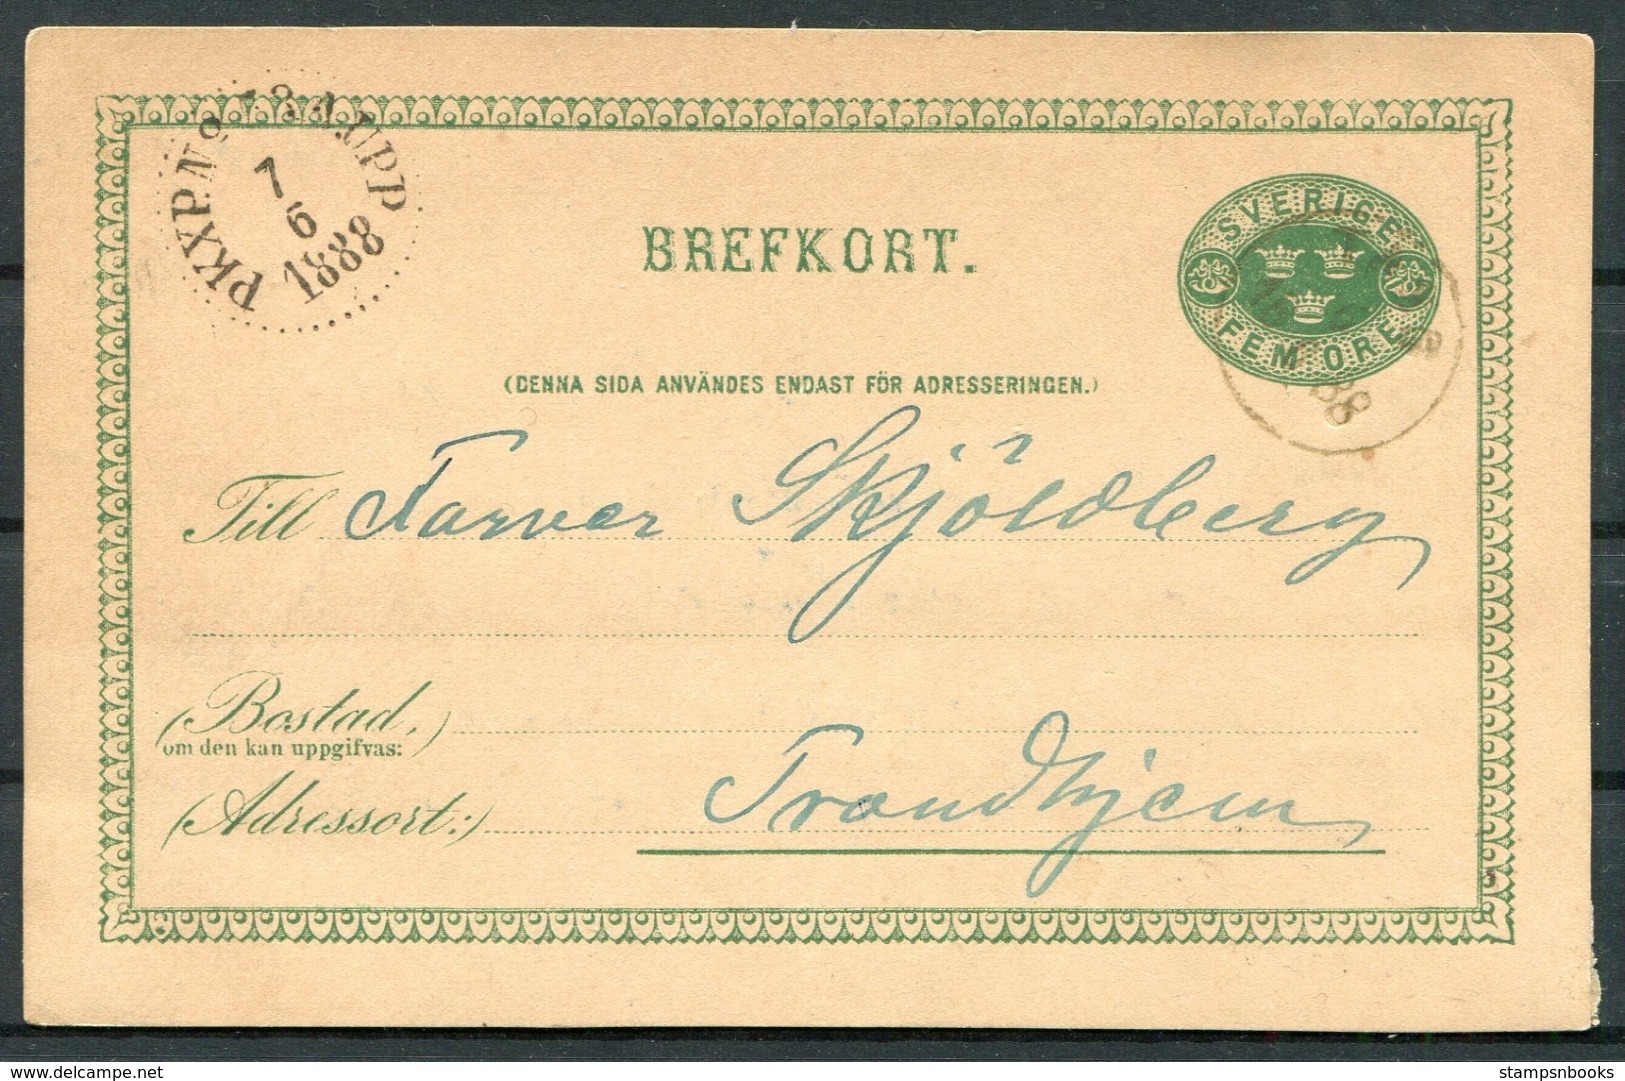 PKXP.Nº 3 A.UPP
7
6
1888
BREFKORT.
SVERIGE
FEM ÖRE
88
(DENNA SIDA ANVÄNDES ENDAST FÖR ADRESSERINGEN.)
Till Farver Skjöldberg
(Bostad,)
om den kan uppgifvas:
(Adressort:) Trondhjem
delcampe.net
stampsnbooks